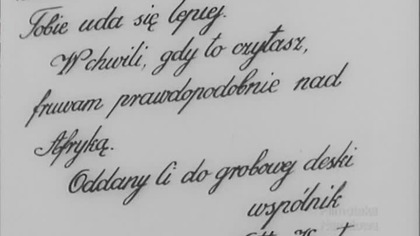 Tobie uda się lepiej.
W chwili, gdy to czytasz,
fruwam prawdopodobnie nad
Afryką.
Oddany Ci do grobowej deski
wspólnik